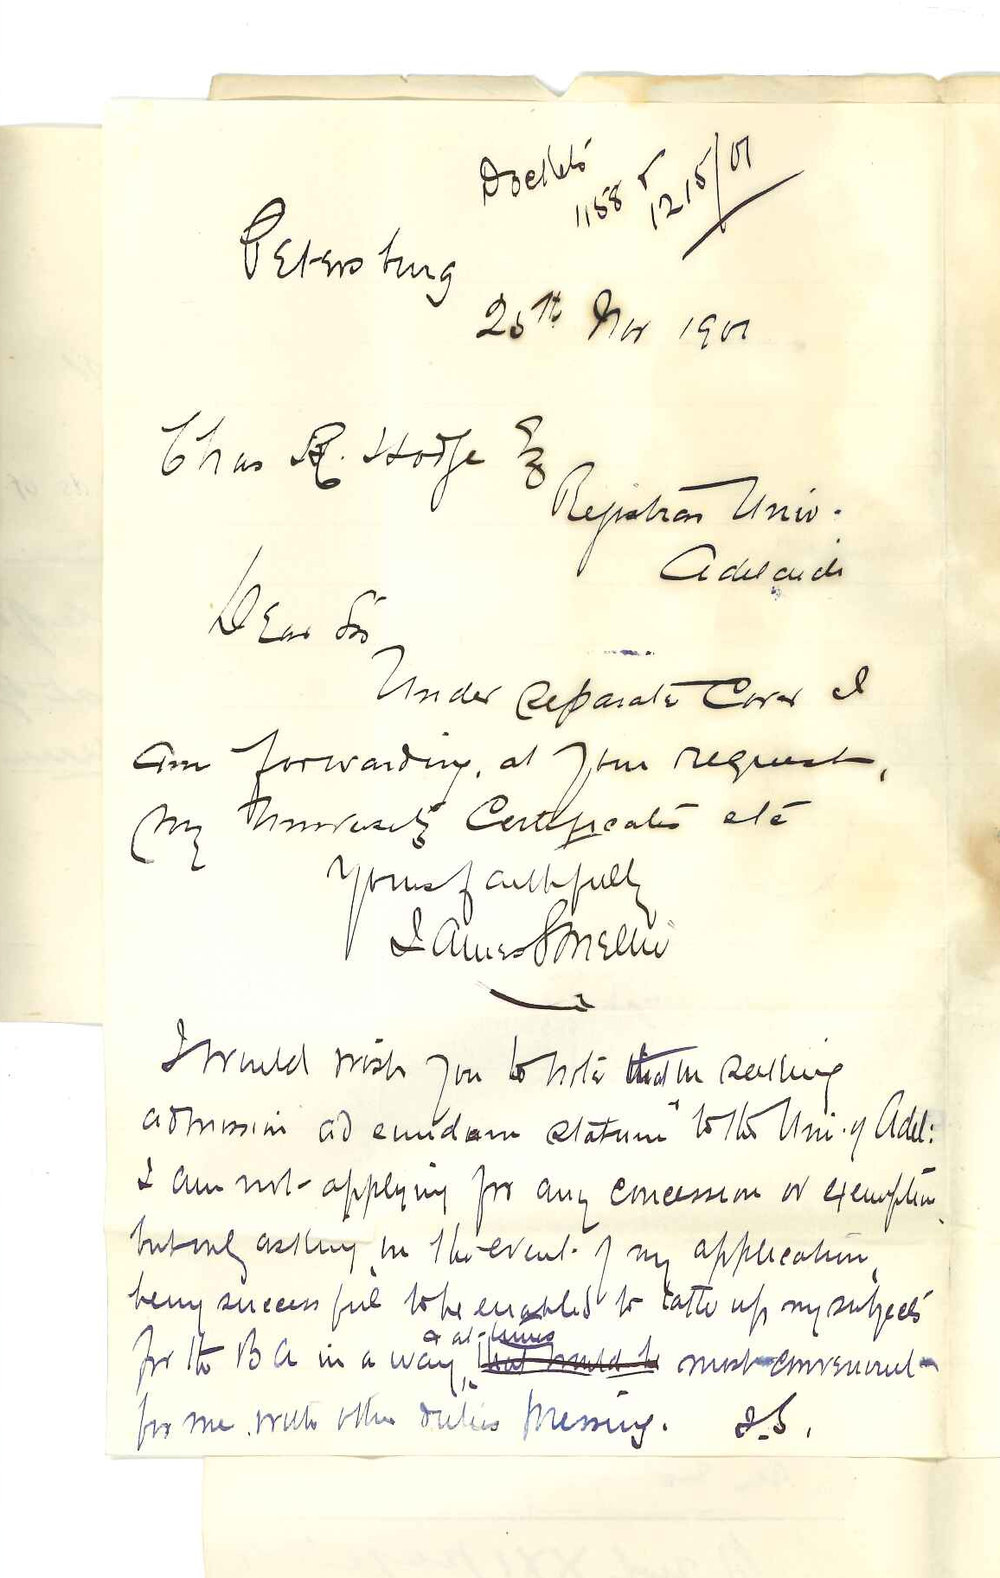 Dockets
1158 &
1215/01
Petersburg
25th Nov 1901
Chas R. Hodge Esq
Registrar Univ.
Adelaide
Dear Sir
Under separate cover I
am forwarding, at your request,
my University Certificates etc
Yours faithfully
James
I would wish you to note that in seeking
admission ad eundem statum to the Uni. of Adel:
I am not applying for any concession or exemption
but only asking, in the event of my application
being successful to be enabled to take up my subjects
for the BA in a way, & at times that would be most convenient
for me with other duties pressing. J.S.